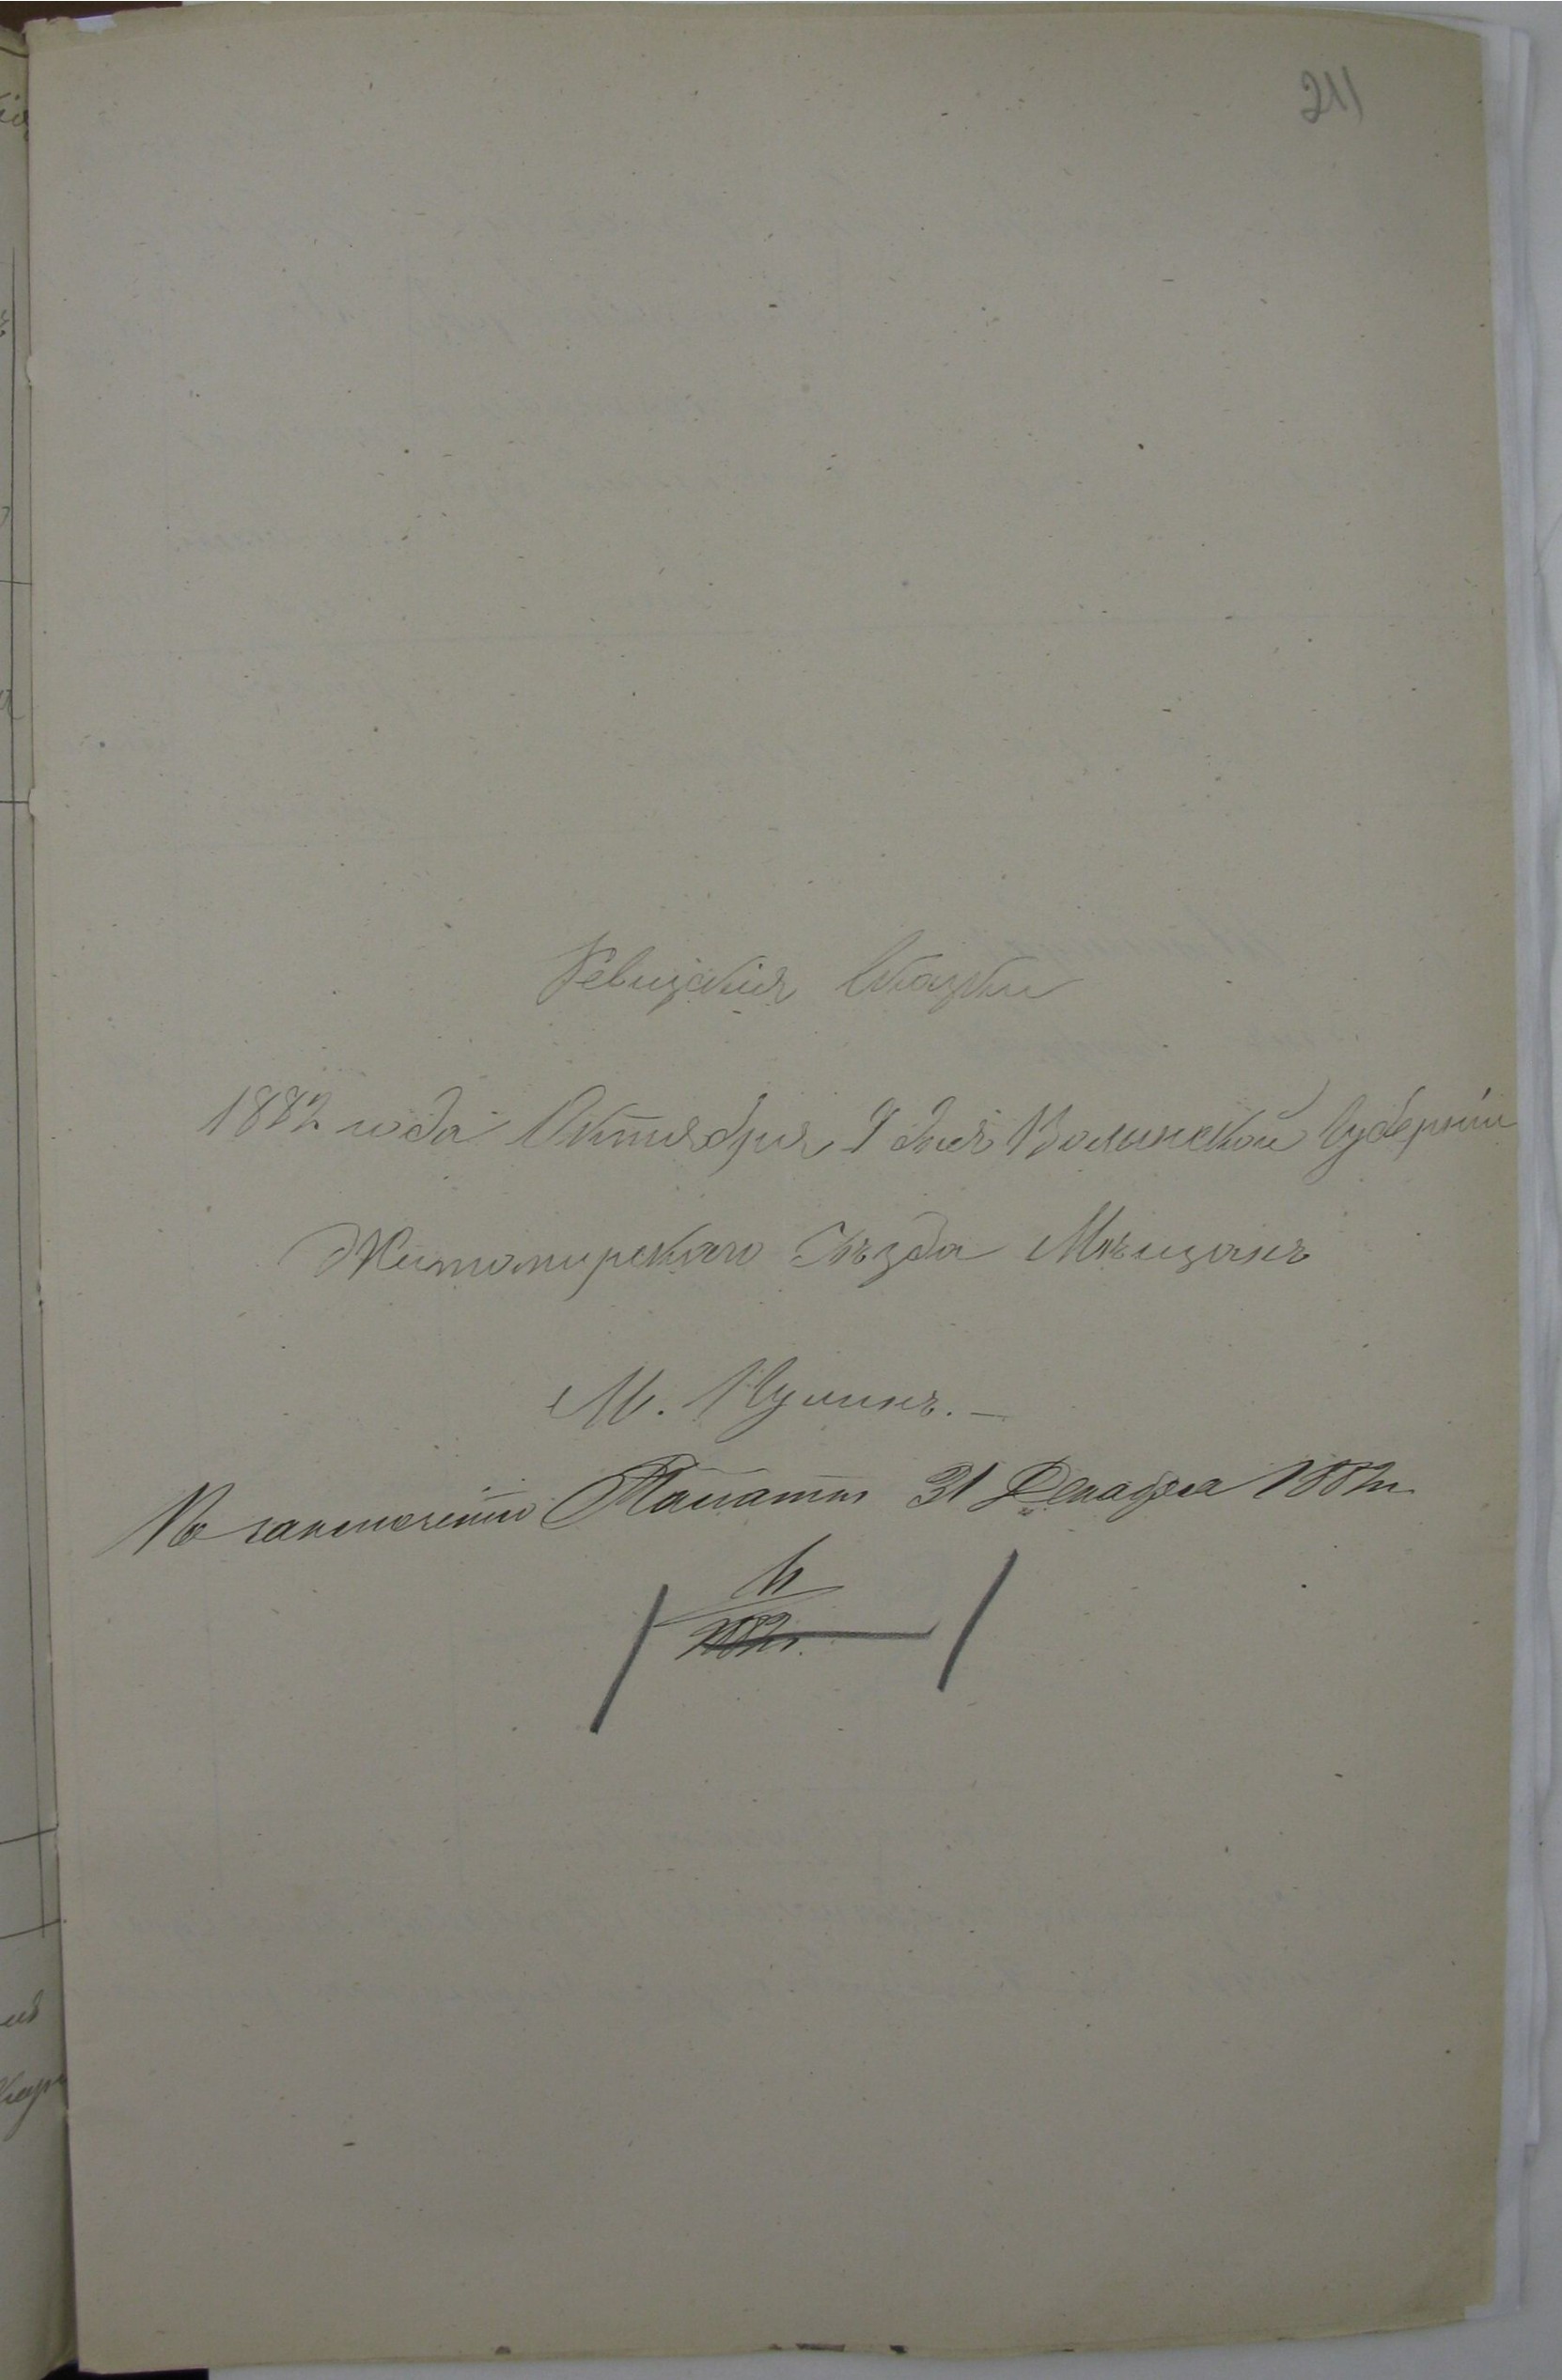 211
Ревизскія Сказки
1882 года Октября 9 дня Волынской Губерніи
Житомирскаго Уѣзда Мѣщанъ
М. Кулинъ. —
Къ заключенію Палаты 31 Декабря 1882 г.
1882 г.